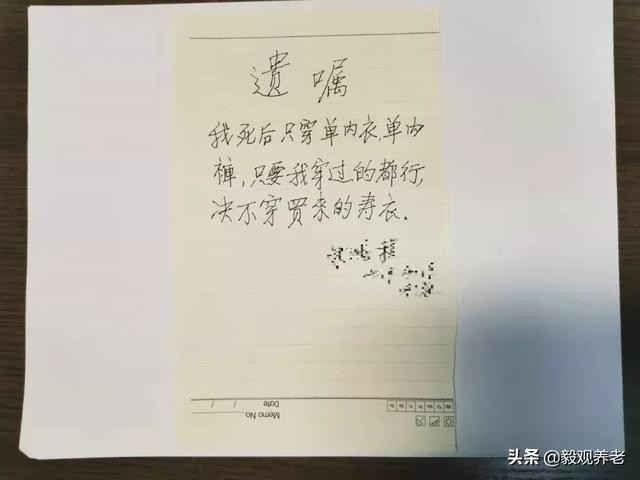 遺嘱
我死后只穿单内衣,单内
裤,只要我穿过的都行,
决不穿买来的寿衣.
Memo No.
Date / /
头条 @毅观养老